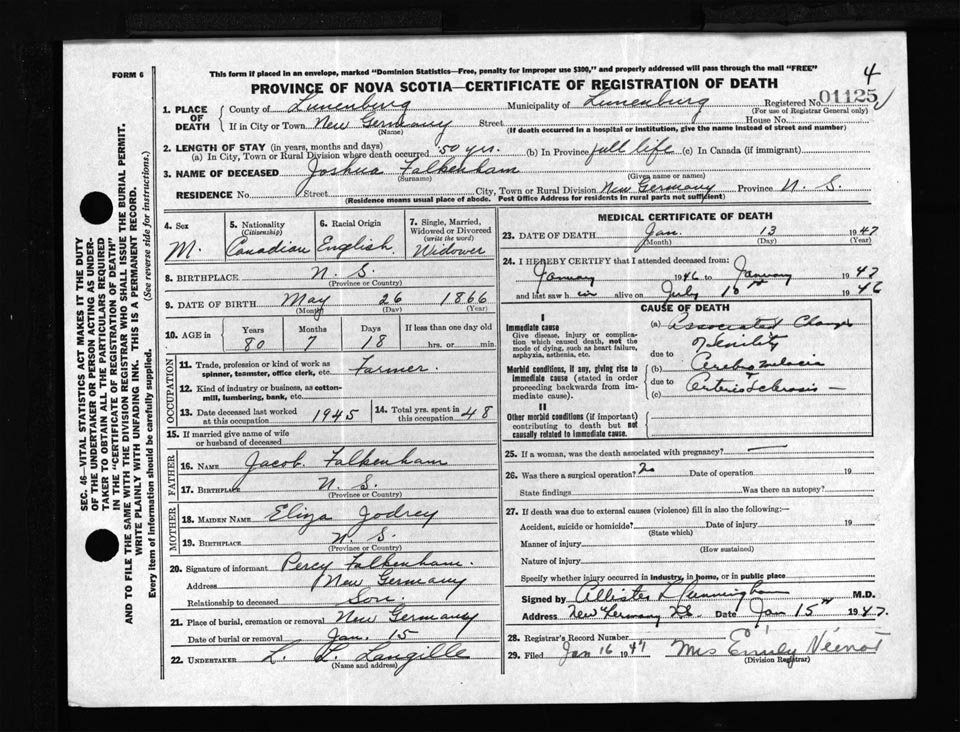 FORM 6
This form if placed in an envelope, marked "Dominion Statistics—Free, penalty for improper use $300," and properly addressed will pass through the mail "FREE"
4
PROVINCE OF NOVA SCOTIA—CERTIFICATE OF REGISTRATION OF DEATH
1. PLACE OF DEATH
County of Lunenburg Municipality of Lunenburg Registered No. 01125
(For use of Registrar General only)
If in City or Town New Germany Street House No.
(Name) (If death occurred in a hospital or institution, give the name instead of street and number)
2. LENGTH OF STAY (in years, months and days)
(a) In City, Town or Rural Division where death occurred 50 yrs. (b) In Province full life (c) In Canada (if immigrant)
3. NAME OF DECEASED Joshua Falkenham
(Surname) (Given name or names)
RESIDENCE No. Street City, Town or Rural Division New Germany Province N. S.
(Residence means usual place of abode. Post Office Address for residents in rural parts not sufficient)
4. Sex M.
5. Nationality (Citizenship) Canadian
6. Racial Origin English
7. Single, Married, Widowed or Divorced (write the word) Widower
8. BIRTHPLACE N. S.
(Province or Country)
9. DATE OF BIRTH May 26 1866
(Month) (Day) (Year)
10. AGE in Years Months Days If less than one day old
80 7 18 hrs. or min.
OCCUPATION
11. Trade, profession or kind of work as spinner, teamster, office clerk, etc. Farmer.
12. Kind of industry or business, as cotton-mill, lumbering, bank, etc.
13. Date deceased last worked at this occupation 1945
14. Total yrs. spent in this occupation 48
15. If married give name of wife or husband of deceased
FATHER
16. NAME Jacob Falkenham
17. BIRTHPLACE N. S.
(Province or Country)
MOTHER
18. MAIDEN NAME Eliza Jodrey
19. BIRTHPLACE N. S.
(Province or Country)
20. Signature of informant Percy Falkenham.
Address New Germany
Relationship to deceased Son.
21. Place of burial, cremation or removal New Germany
Date of burial or removal Jan. 15
22. UNDERTAKER L. L. Langille
(Name and address)
MEDICAL CERTIFICATE OF DEATH
23. DATE OF DEATH Jan. 13 1947
(Month) (Day) (Year)
24. I HEREBY CERTIFY that I attended deceased from:
January 1946 to January 1947
and last saw h im alive on July 10th 1946
CAUSE OF DEATH
I
Immediate cause
Give disease, injury or complication which caused death, not the mode of dying, such as heart failure, asphyxia, asthenia, etc.
Morbid conditions, if any, giving rise to immediate cause (stated in order proceeding backwards from immediate cause).
II
Other morbid conditions (if important) contributing to death but not causally related to immediate cause.
(a) Associated Changes
of senility
due to
(b) Cerebromalacia
due to
(c) Arteriosclerosis —
25. If a woman, was the death associated with pregnancy?
26. Was there a surgical operation? Date of operation 19
State findings Was there an autopsy?
27. If death was due to external causes (violence) fill in also the following:—
Accident, suicide or homicide? Date of injury 19
(State which)
Manner of injury
(How sustained)
Nature of injury
Specify whether injury occurred in industry, in home, or in public place
Signed by Allister Cunningham M.D.
Address New Germany N.S. Date Jan 15th 1947.
28. Registrar's Record Number
29. Filed Jan 16 1947 Mrs Emily Veinot
(Division Registrar)
SEC. 46—VITAL STATISTICS ACT MAKES IT THE DUTY
OF THE UNDERTAKER OR PERSON ACTING AS UNDER-
TAKER TO OBTAIN ALL THE PARTICULARS REQUIRED
IN THE "CERTIFICATE OF REGISTRATION OF DEATH"
AND TO FILE THE SAME WITH THE DIVISION REGISTRAR WHO SHALL ISSUE THE BURIAL PERMIT.
WRITE PLAINLY WITH UNFADING INK. THIS IS A PERMANENT RECORD.
Every item of information should be carefully supplied. (See reverse side for instructions.)